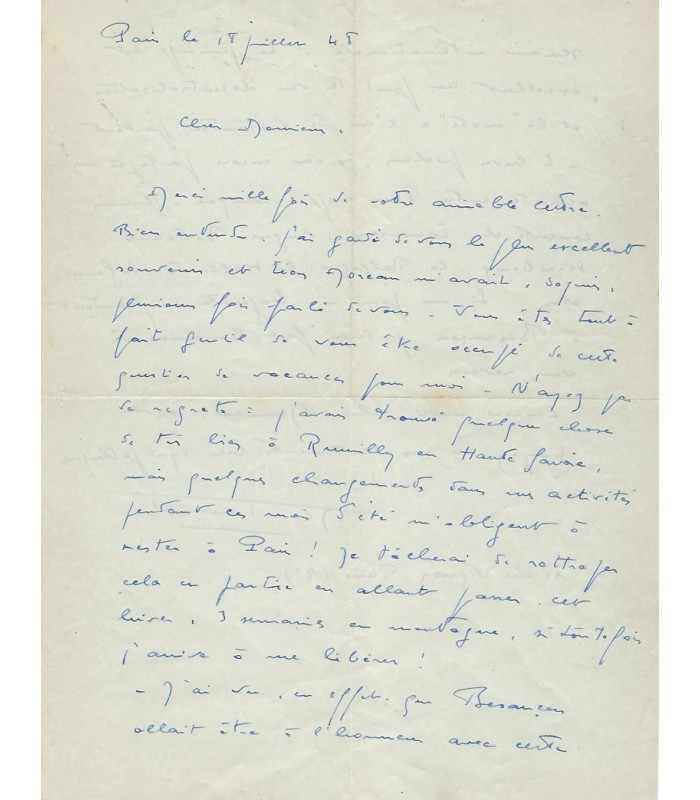 Paris le 18 juillet 48
Cher Monsieur.
Merci mille fois de votre aimable lettre.
Bien entendu. j'ai gardé de vous le plus excellent
souvenir et Léon Moreau m'avait, depuis,
plusieurs fois parlé de vous - Vous êtes tout à
fait gentil de vous être occupé de cette
question de vacances pour moi - N'ayez pas
de regrets : j'avais trouvé quelque chose
de très bien à Rumilly en Haute Savoie,
mais quelques changements dans mes activités
pendant ces mois d'été m'obligent à
rester à Paris ! Je tâcherai de rattraper
cela en partie en allant passer cet
hiver, 3 semaines en montagne, si toutefois
j'arrive à me libérer !
- J'ai vu, en effet, que Besançon
allait être à l'honneur avec cette